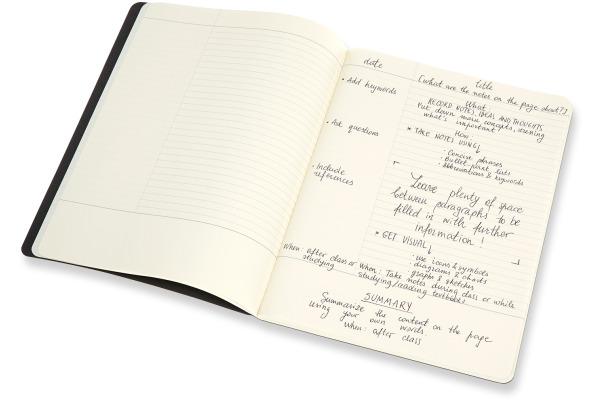 date
title
(what are the notes on the page about?)
• Add keywords
• Ask questions
• Include
references
When: after class or
studying
What
RECORD NOTES, IDEAS AND THOUGHTS
Put down main concepts,
what's important
How
* TAKE NOTES USING
• Concise phrases
• Bullet point lists
• Abbreviations & keywords
Leave plenty of space
between paragraphs to be
filled in with further
information!
* GET VISUAL
• use icons & symbols
• diagrams & charts
• graphs & sketches
When: Take notes during class or while
studying/reading textbooks
SUMMARY
Summarize the content on the page
using your own words.
When: after class